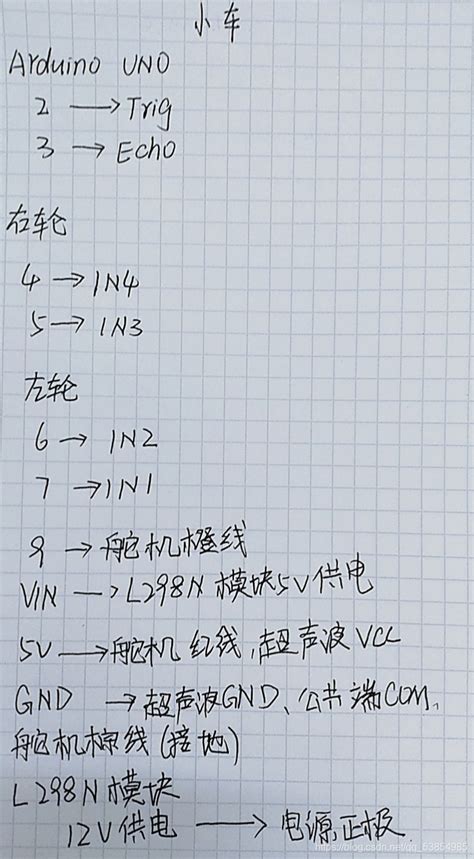 小车
Arduino UNO
2 → Trig
3 → Echo
右轮
4 → IN4
5 → IN3
左轮
6 → IN2
7 → IN1
9 → 舵机橙线
VIN → L298N 模块5V供电
5V → 舵机红线,超声波VCC
GND → 超声波GND、公共端COM、
舵机棕线(接地)
L298N模块
12V供电 → 电源正极
https://blog.csdn.net/qq_63854985